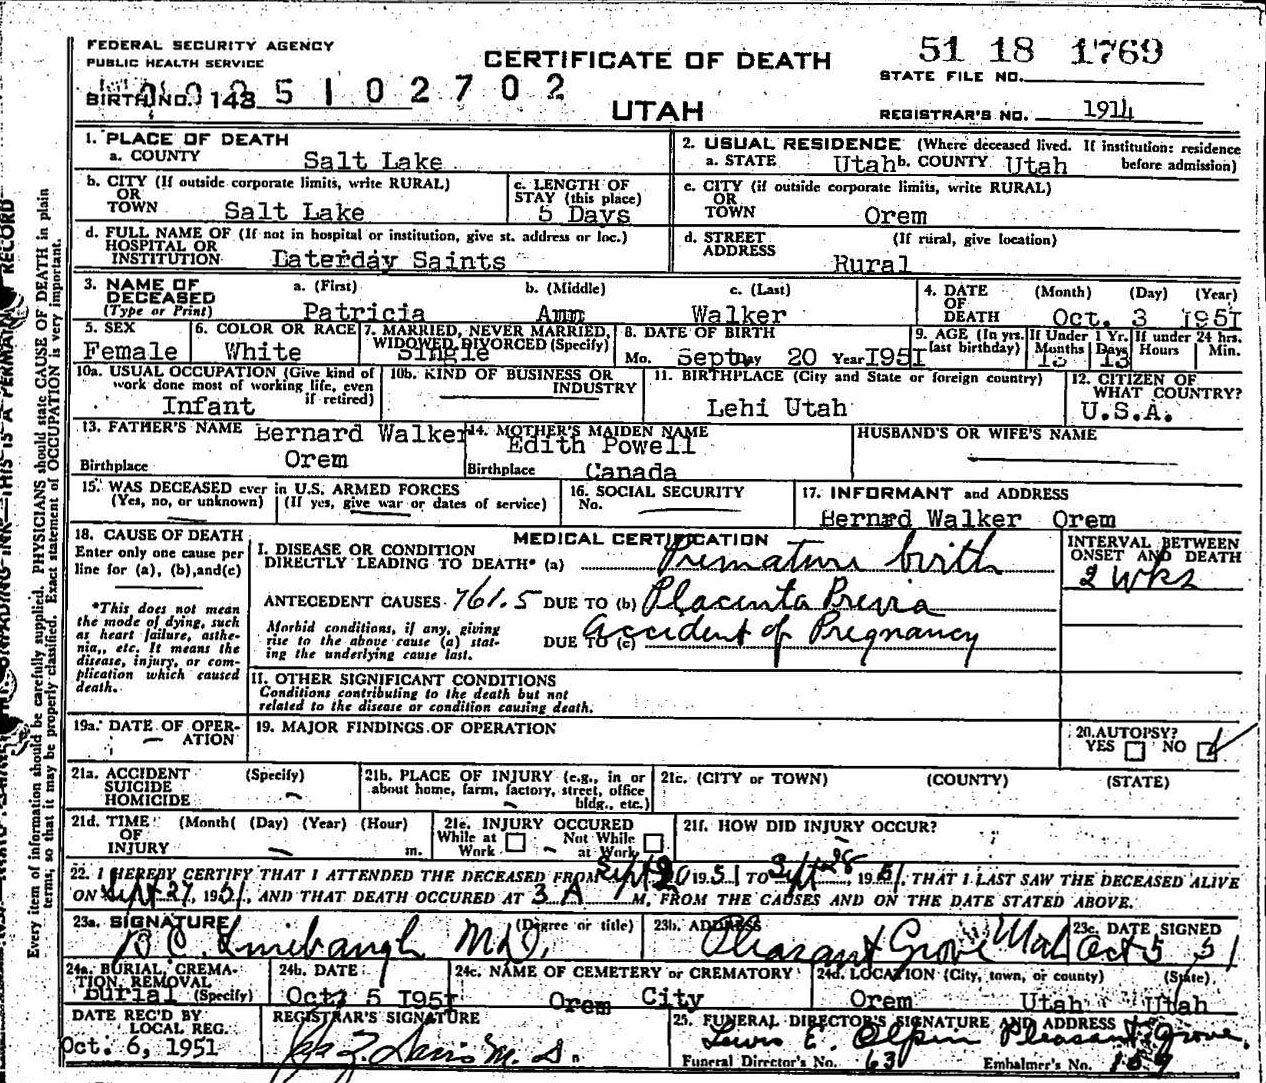 FEDERAL SECURITY AGENCY
PUBLIC HEALTH SERVICE
CERTIFICATE OF DEATH
51 18 1769
STATE FILE NO.
BIRTH NO. 143 5 1 0 2 7 0 2
UTAH
REGISTRAR'S NO. 1914
1. PLACE OF DEATH
a. COUNTY Salt Lake
2. USUAL RESIDENCE (Where deceased lived. If institution: residence before admission)
a. STATE Utah b. COUNTY Utah
b. CITY (If outside corporate limits, write RURAL)
OR
TOWN Salt Lake
c. LENGTH OF
STAY (this place)
5 Days
c. CITY (if outside corporate limits, write RURAL)
OR
TOWN Orem
d. FULL NAME OF (If not in hospital or institution, give st. address or loc.)
HOSPITAL OR
INSTITUTION Laterday Saints
d. STREET (If rural, give location)
ADDRESS Rural
3. NAME OF DECEASED
(Type or Print)
a. (First) b. (Middle) c. (Last)
Patricia Ann Walker
4. DATE OF DEATH (Month) (Day) (Year)
Oct. 3 1951
5. SEX
Female
6. COLOR OR RACE
White
7. MARRIED, NEVER MARRIED,
WIDOWED, DIVORCED (Specify)
Single
8. DATE OF BIRTH
Mo. Sept Day 20 Year 1951
9. AGE (In yrs. last birthday) If Under 1 Yr. If under 24 hrs.
Months Days Hours Min.
13 13
10a. USUAL OCCUPATION (Give kind of
work done most of working life, even
if retired)
Infant
10b. KIND OF BUSINESS OR
INDUSTRY
11. BIRTHPLACE (City and State or foreign country)
Lehi Utah
12. CITIZEN OF
WHAT COUNTRY?
U.S.A.
13. FATHER'S NAME Bernard Walker
Birthplace Orem
14. MOTHER'S MAIDEN NAME
Edith Powell
Birthplace Canada
HUSBAND'S OR WIFE'S NAME
15. WAS DECEASED ever in U.S. ARMED FORCES
(Yes, no, or unknown) (If yes, give war or dates of service)
16. SOCIAL SECURITY
No.
17. INFORMANT and ADDRESS
Bernard Walker Orem
18. CAUSE OF DEATH
Enter only one cause per
line for (a), (b), and (c)
*This does not mean
the mode of dying, such
as heart failure, asthe-
nia,, etc. It means the
disease, injury, or com-
plication which caused
death.
MEDICAL CERTIFICATION
I. DISEASE OR CONDITION
DIRECTLY LEADING TO DEATH* (a) Premature birth
ANTECEDENT CAUSES 761.5 DUE TO (b) Placenta Previa
Morbid conditions, if any, giving
rise to the above cause (a) stat-
ing the underlying cause last.
DUE TO (c) Accident of Pregnancy
INTERVAL BETWEEN
ONSET AND DEATH
2 wks
II. OTHER SIGNIFICANT CONDITIONS
Conditions contributing to the death but not
related to the disease or condition causing death.
19a. DATE OF OPER-
ATION
19. MAJOR FINDINGS OF OPERATION
20. AUTOPSY?
YES NO
21a. ACCIDENT (Specify)
SUICIDE
HOMICIDE
21b. PLACE OF INJURY (e.g., in or
about home, farm, factory, street, office
bldg., etc.)
21c. (CITY or TOWN) (COUNTY) (STATE)
21d. TIME (Month( (Day) (Year) (Hour)
OF
INJURY m.
21e. INJURY OCCURED
While at Work Not While at Work
21f. HOW DID INJURY OCCUR?
22. I HEREBY CERTIFY THAT I ATTENDED THE DECEASED FROM Sept 20 1951 TO Sept 28, 1951, THAT I LAST SAW THE DECEASED ALIVE
ON Sept 27, 1951, AND THAT DEATH OCCURED AT 3 A M, FROM THE CAUSES AND ON THE DATE STATED ABOVE.
23a. SIGNATURE (Degree or title)
M.D.
23b. ADDRESS
Pleasant Grove Utah
23c. DATE SIGNED
Oct 5 51
24a. BURIAL, CREMA-
TION, REMOVAL
Burial (Specify)
24b. DATE
Oct 5 1951
24c. NAME OF CEMETERY or CREMATORY
Orem City
24d. LOCATION (City, town, or county) (State)
Orem Utah Utah
DATE REC'D BY
LOCAL REG.
Oct. 6, 1951
REGISTRAR'S SIGNATURE
M. D.
25. FUNERAL DIRECTOR'S SIGNATURE AND ADDRESS
Lewis E. Olpin Pleasant Grove.
Funeral Director's No. 63 Embalmer's No.
THIS IS A PERMANENT RECORD
Every item of information should be carefully supplied. PHYSICIANS should state CAUSE OF DEATH in plain
terms; so that it may be properly classified. Exact statement of OCCUPATION is very important.